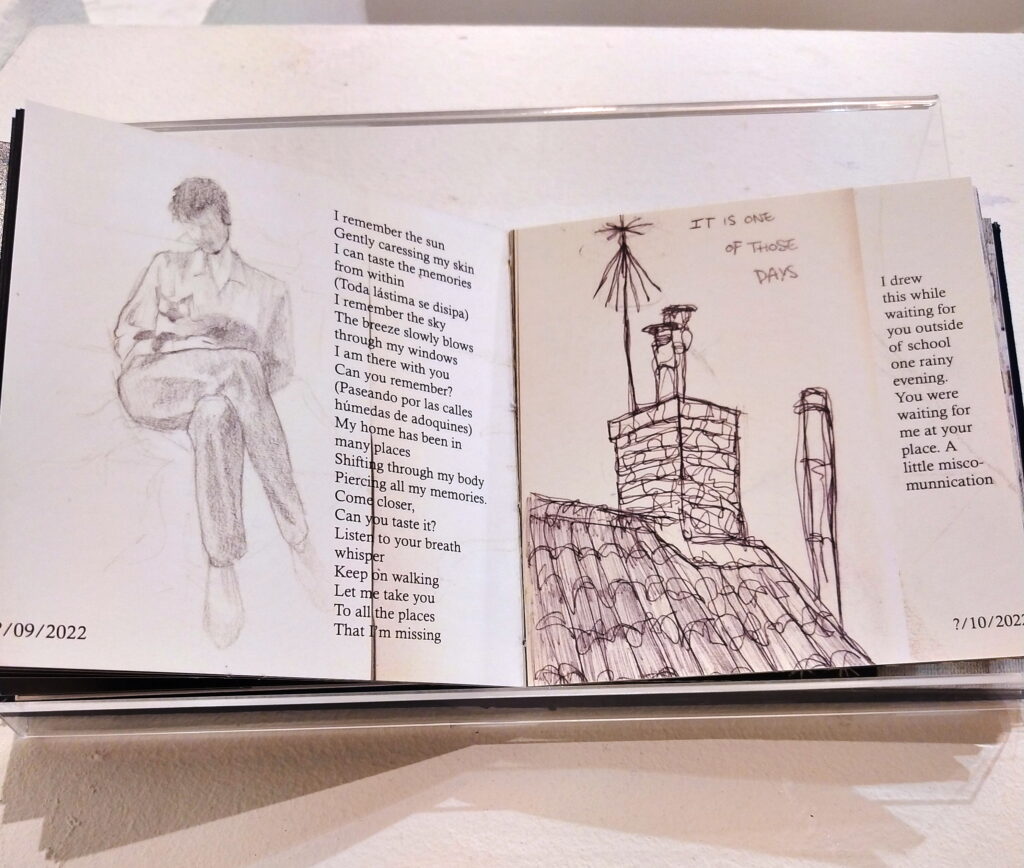 I remember the sun
Gently caressing my skin
I can taste the memories
from within
(Toda lástima se disipa)
I remember the sky
The breeze slowly blows
through my windows
I am there with you
Can you remember?
(Paseando por las calles
húmedas de adoquines)
My home has been in
many places
Shifting through my body
Piercing all my memories.
Come closer,
Can you taste it?
Listen to your breath
whisper
Keep on walking
Let me take you
To all the places
That I'm missing
?/09/2022
IT IS ONE
OF THOSE
DAYS
I drew
this while
waiting for
you outside
of school
one rainy
evening.
You were
waiting for
me at your
place. A
little misco-
munnication
?/10/2022